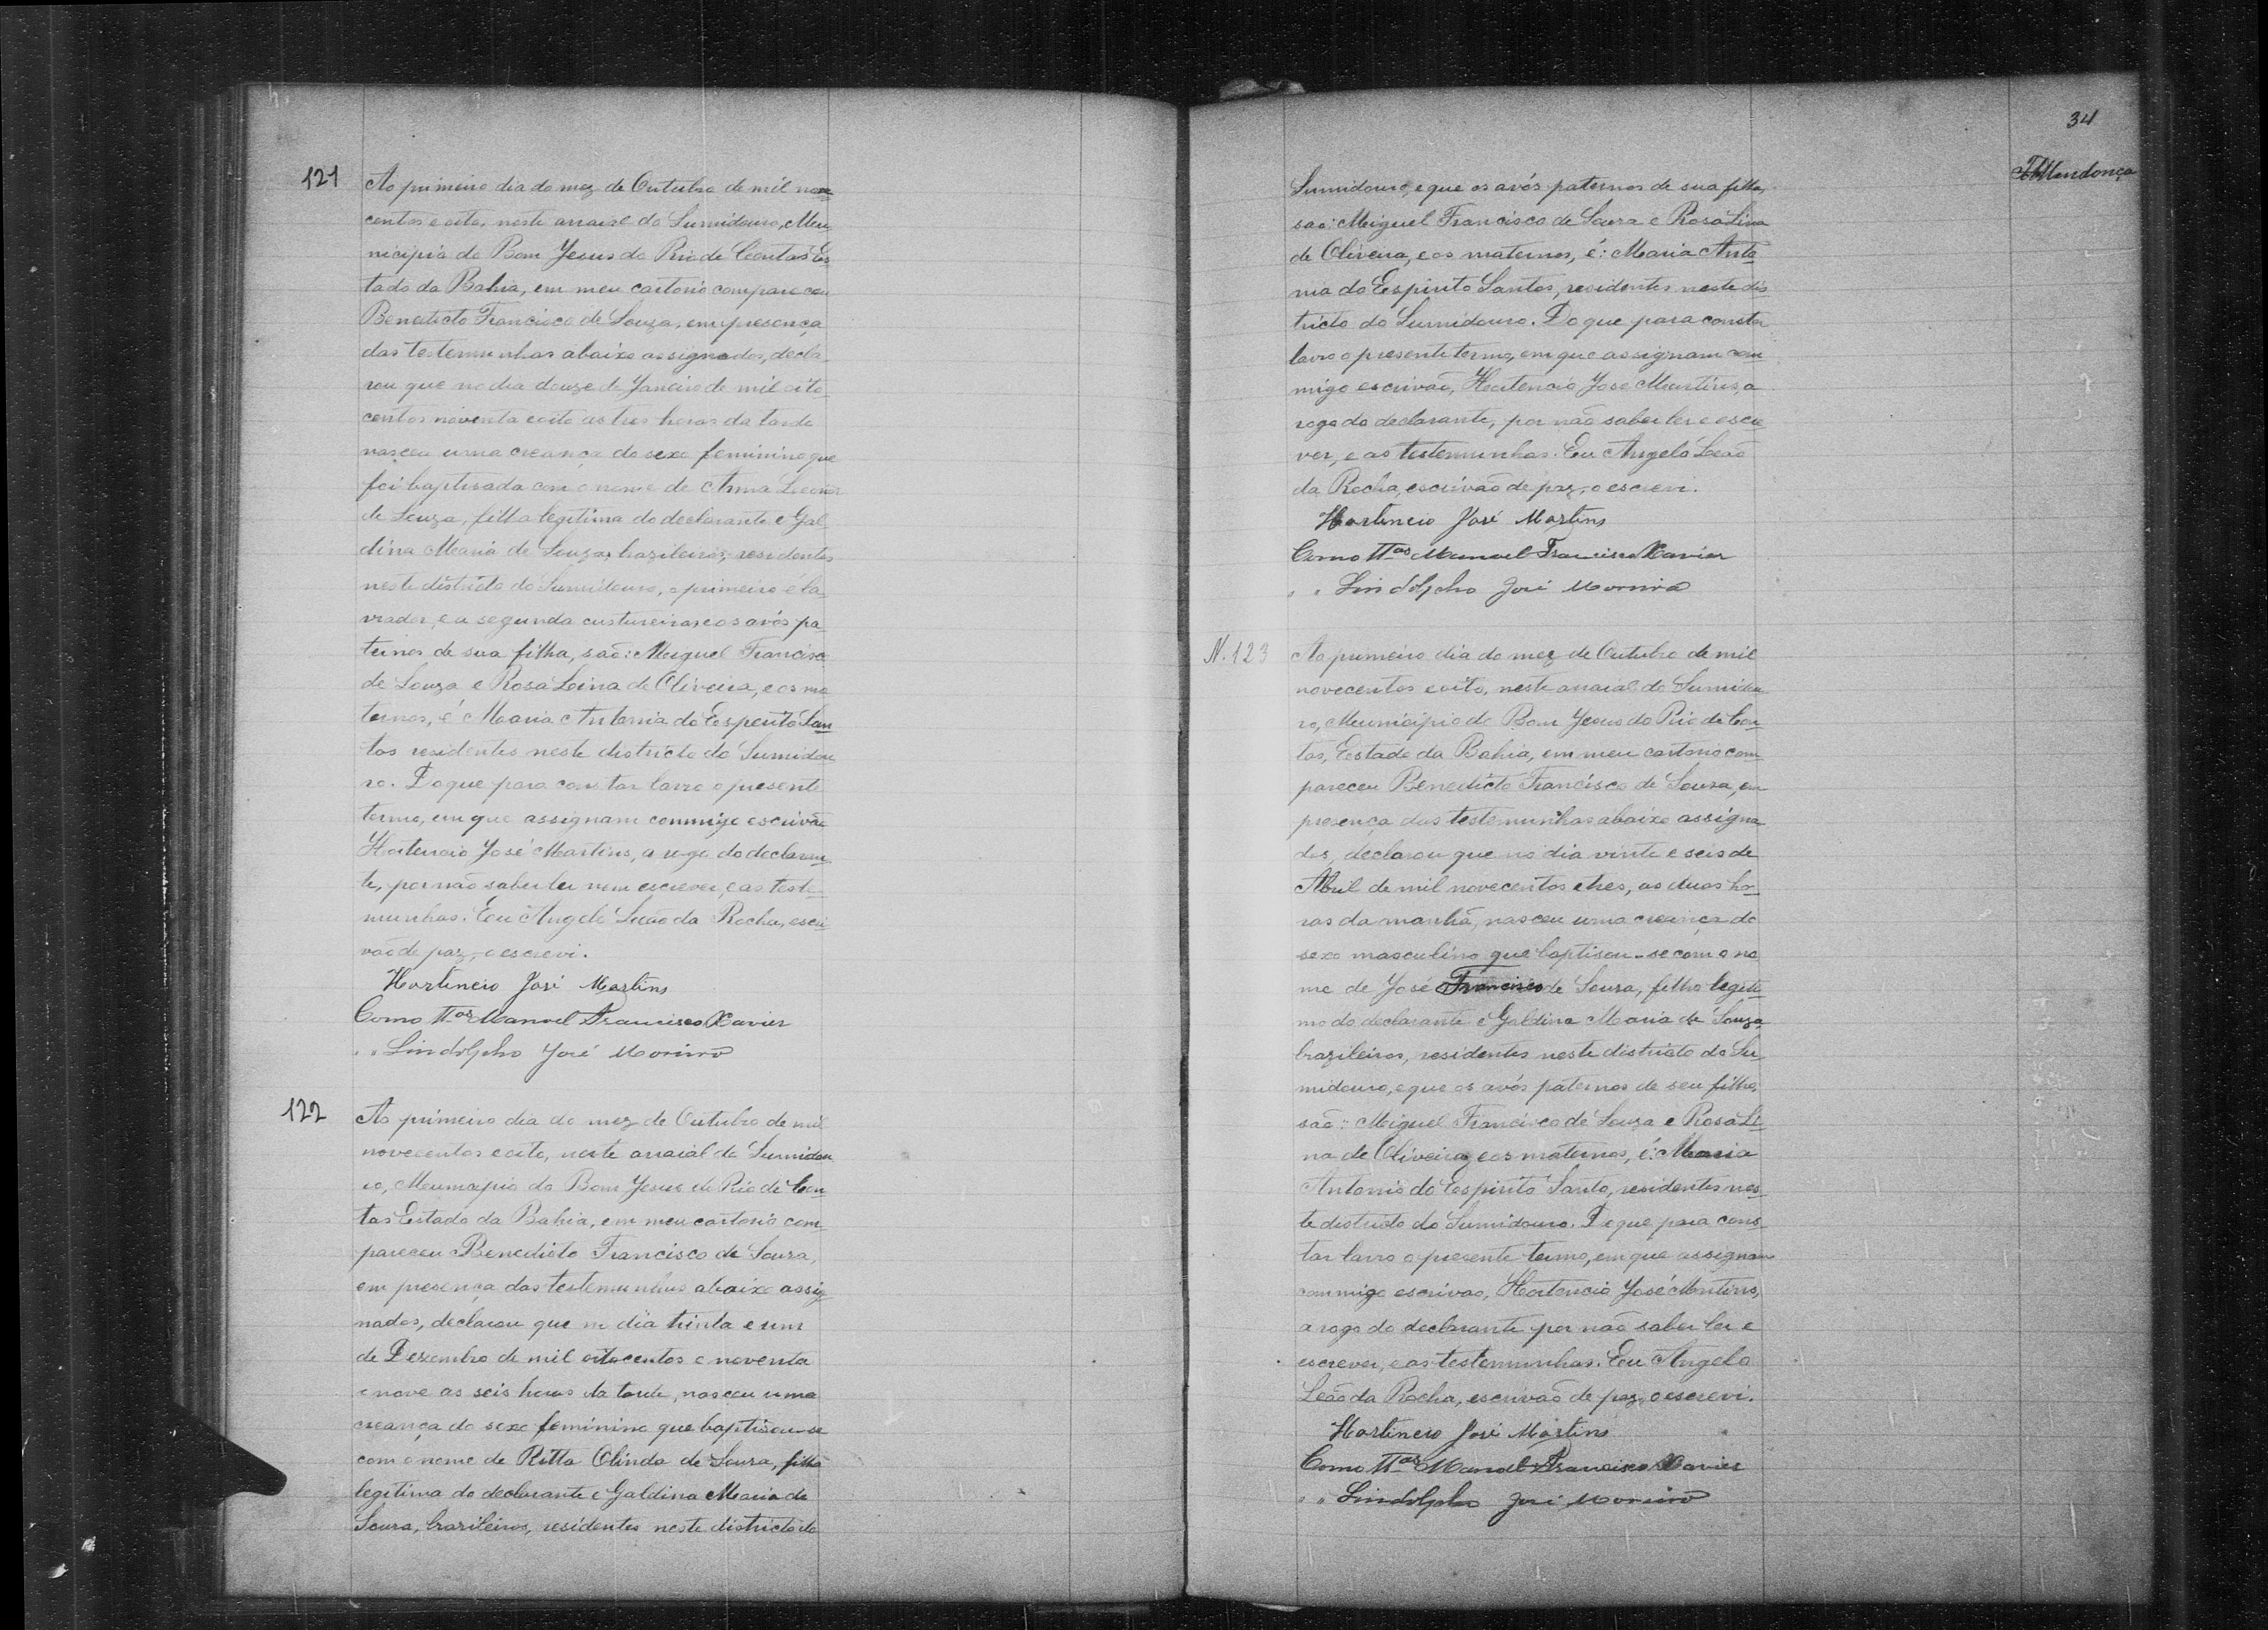 121
Ao primeiro dia do mez de Outubro de mil nove
centos e oito, neste arraial do Sumidouro, Mu
nicipio do Bom Jesus do Rio de Contas Es
tado da Bahia, em meu cartorio compareceu
Benedicto Francisco de Souza, em presença
das testemunhas abaixo assignados, decla
rou que no dia douze de Janeiro de mil oito
centos noventa e oito as tres horas da tarde
nasceu uma creança do sexo feminino que
foi baptisada com o nome de Anna
de Souza, filha legitima do declarante e Gal
dina Maria de Souza, brazileiros, residentes
neste districto do Sumidouro, o primeiro é la
vrador, e a segunda custureira, e os avós pa
ternos de sua filha, são: Miguel Francisco
de Souza e Rosa Lina de Oliveira, e os ma
ternos, é Maria Antonia do Espirito San
tos residentes neste districto do Sumidou
ro. Do que para constar lavro o presente
termo, em que assignam commigo escrivão
Hortencio José Martins, a rogo do declaran
te, por não saber ler nem escrever, e as teste
munhas. Eu Angelo Leão da Rocha, escri
vão de paz, o escrevi.
Hortencio José Martins
Como ttas Manoel Francisco Xavier
" " Lindolpho José Moreira
122
Ao primeiro dia do mez de Outubro de mil
novecentos e oito, neste arraial do Sumidou
ro, Municipio do Bom Jesus do Rio de Con
tas Estado da Bahia, em meu cartorio com
pareceu Benedicto Francisco de Souza,
em presença das testemunhas abaixo assig
nados, declarou que no dia trinta e um
de Dezembro de mil oitocentos e noventa
e nove as seis horas da tarde, nasceu uma
creança do sexo feminino que baptisou-se
com o nome de Ritta Olinda de Souza, filha
legitima do declarante e Galdina Maria de
Souza, brazileiros, residentes neste districto do
34
Mendonça
Sumidouro, e que os avós paternos de sua filha,
são: Miguel Francisco de Souza e Rosa Lina
de Oliveira, e os maternos, é: Maria Anto
nia do Espirito Santos, residentes neste dis
tricto do Sumidouro. Do que para constar
lavro o presente termo, em que assignam com
migo escrivão, Hortencio José Martins, a
rogo do declarante, por não saber ler e escre
ver, e as testemunhas. Eu Angelo Leão
da Rocha, escrivão de paz, o escrevi.
Hortencio José Martins
Como ttas Manoel Francisco Xavier
" " Lindolpho José Moreira
N. 123
Ao primeiro dia do mez de Outubro de mil
novecentos e oito, neste arraial do Sumidou
ro, Municipio do Bom Jesus do Rio de Con
tas, Estado da Bahia, em meu cartorio com
pareceu Benedicto Francisco de Souza, em
presença das testemunhas abaixo assigna
dos, declarou que no dia vinte e seis de
Abril de mil novecentos e tres, as duas ho
ras da manhã, nasceu uma creança do
sexo masculino que baptisou-se com o no
me de José Francisco de Souza, filho legiti
mo do declarante e Galdina Maria de Souza,
brazileiros, residentes neste districto do Su
midouro, e que os avós paternos de seu filho,
são: Miguel Francisco de Souza e Rosa Li
na de Oliveira, e os maternos, é: Maria
Antonia do Espirito Santo, residentes nes
te districto do Sumidouro. Do que para cons
tar lavro o presente termo, em que assignam
commigo escrivão, Hortencio José Martins,
a rogo do declarante por não saber ler e
escrever, e as testemunhas. Eu Angelo
Leão da Rocha, escrivão de paz, o escrevi.
Hortencio José Martins
Como ttas Manoel Francisco Xavier
" " Lindolpho José Moreira